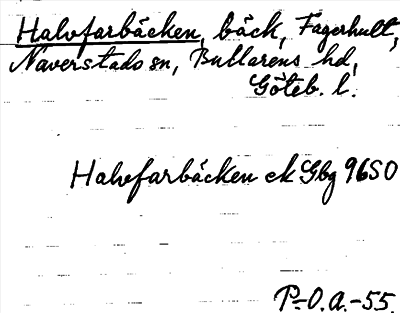 Halvfarbäcken, bäck, Fagerhult,
Naverstads sn, Bullarens hd,
Göteb. l.
Halvfarbäcken ek Gbg 96SO
P.-O.A.-55.